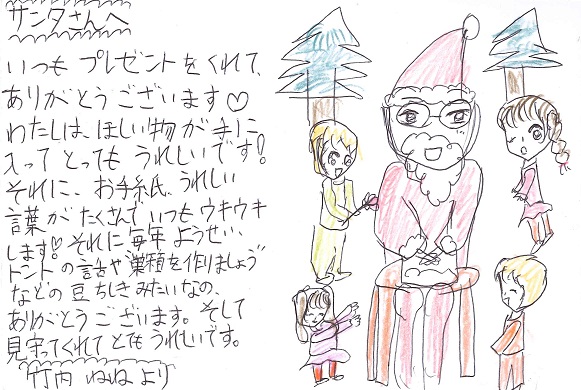 サンタさんへ
いつも プレゼントをくれて、
ありがとうございます♡
わたしは、ほしい物が手に
入って とっても うれしいです!
それに、お手紙、うれしい
言葉がたくさんで いつもウキウキ
します♡それに毎年 ようせい、
トントの話や 巣箱を作りましょう
などの豆ちしきみたいなの、
ありがとうございます。そして
見守ってくれて とてもうれしいです。
竹内 ねね より